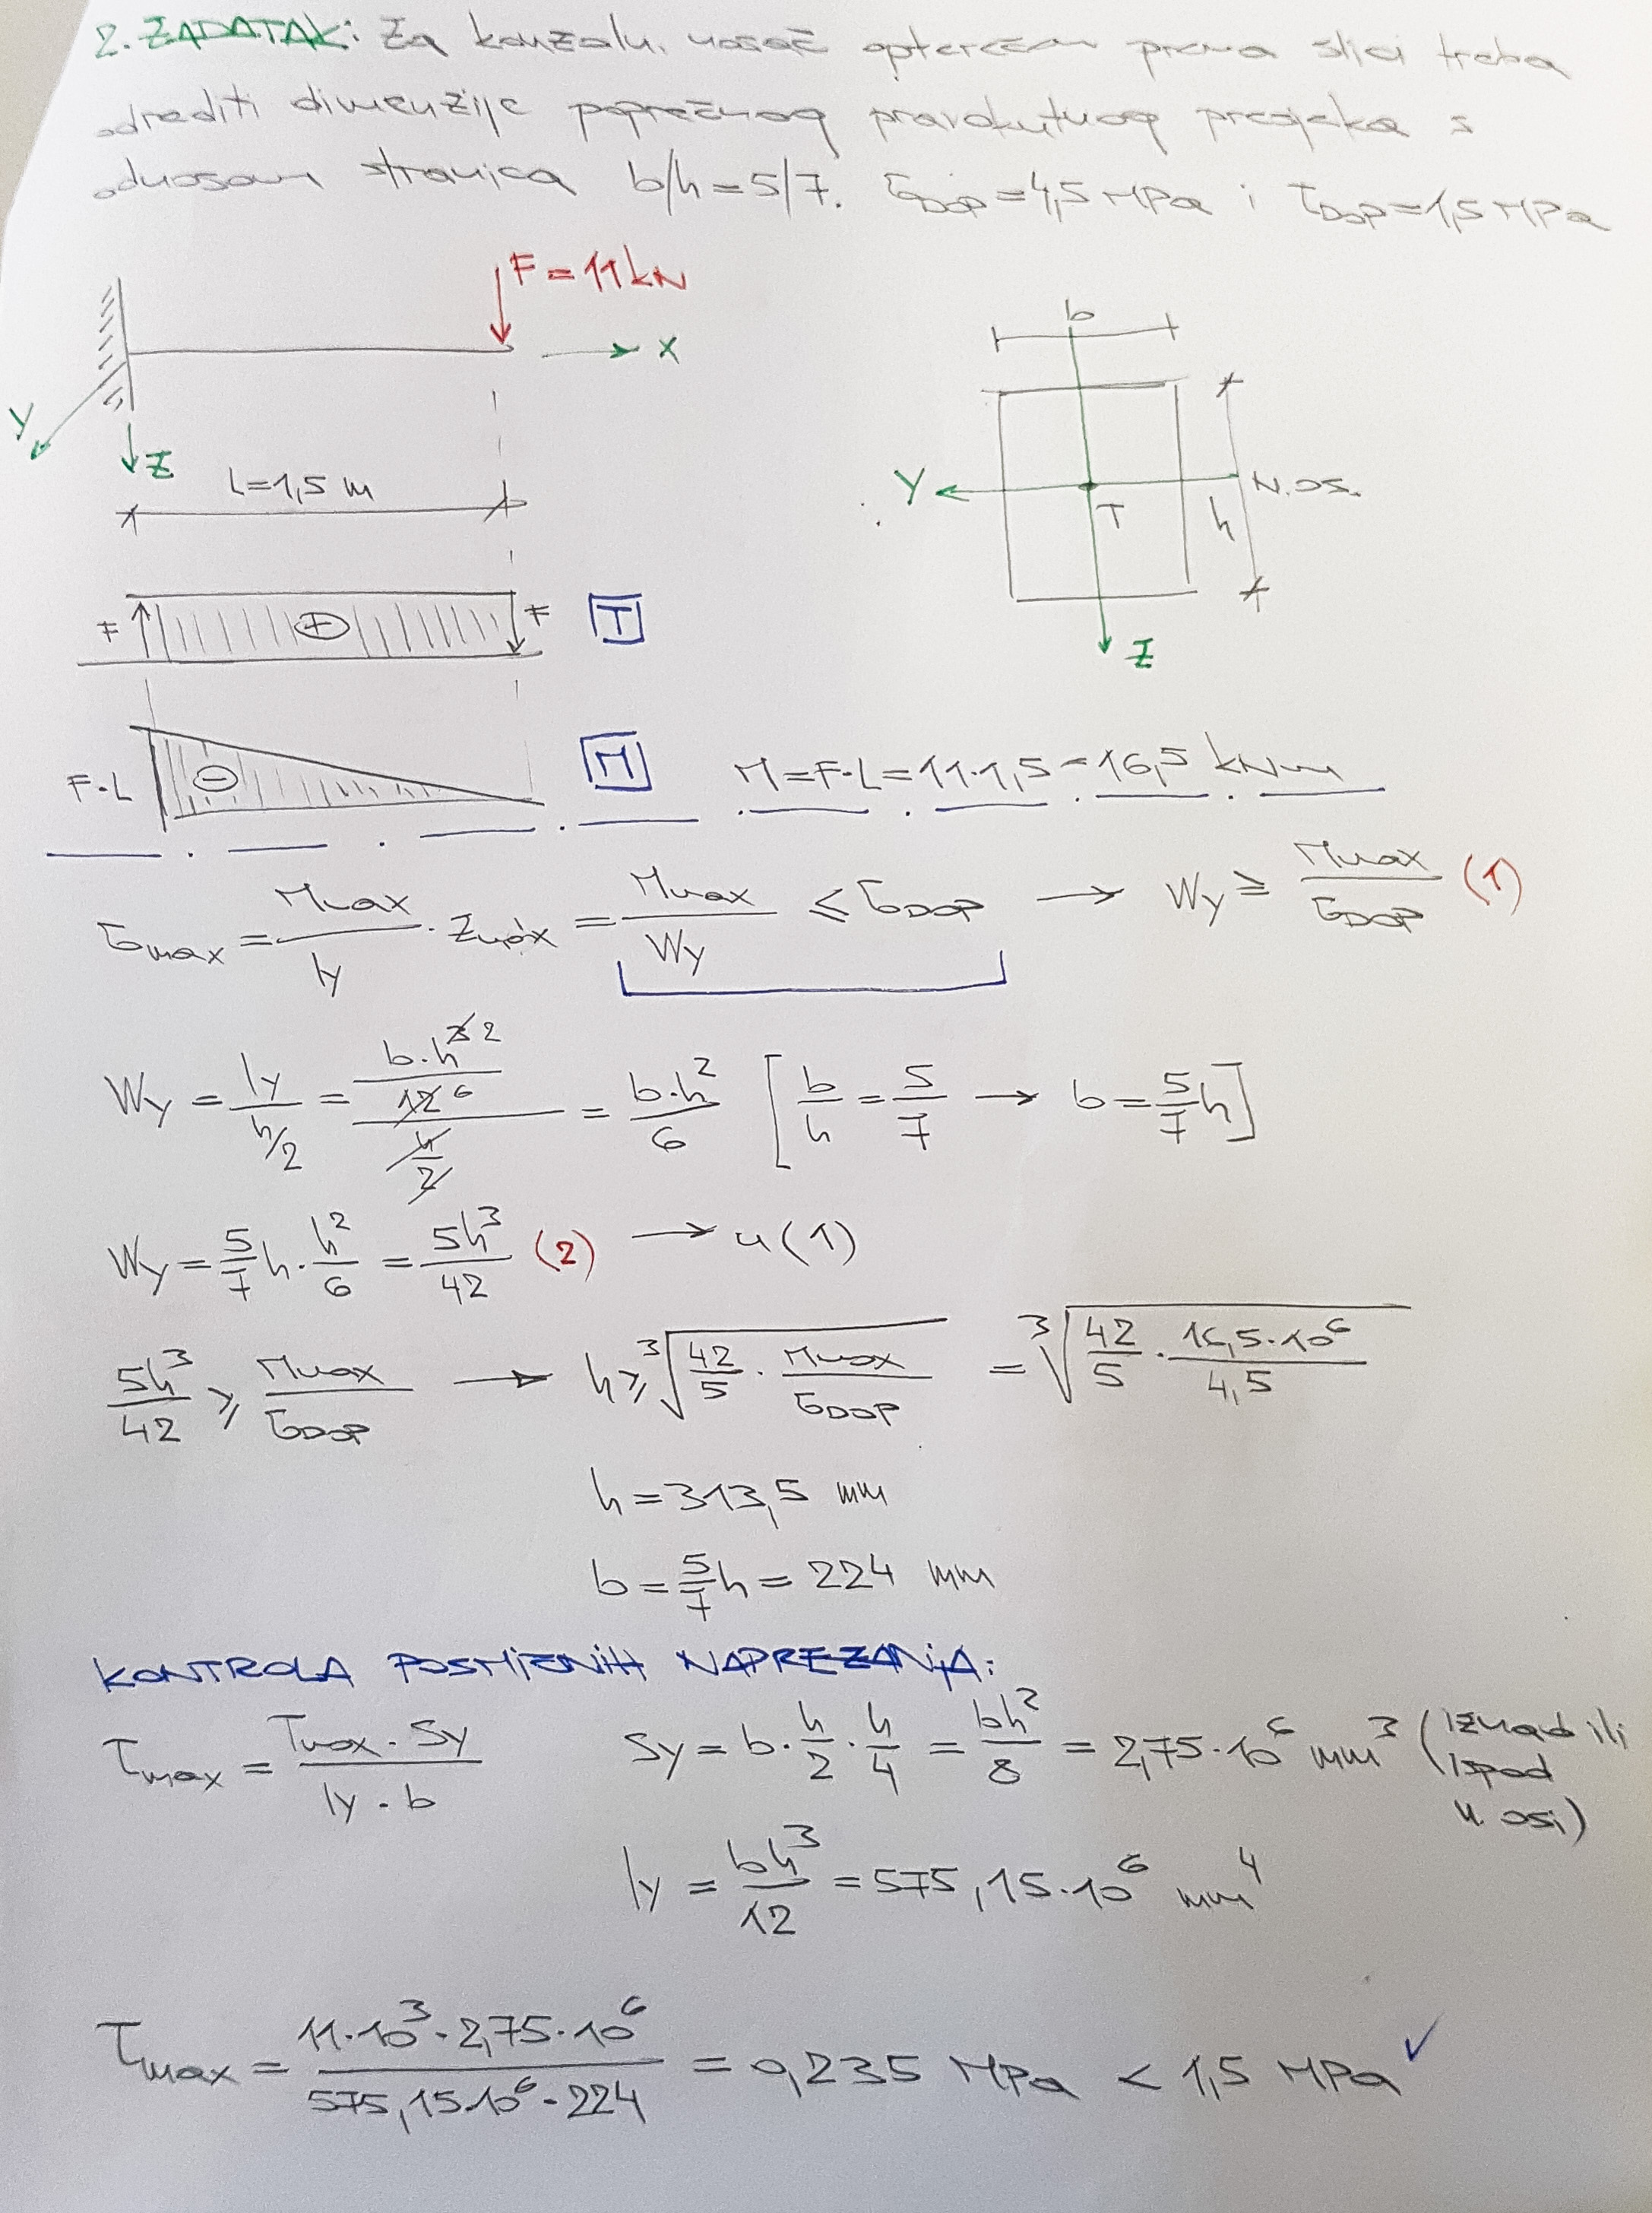 2. ZADATAK: Za konzolu. nosač opterećen prema slici treba
odrediti dimenzije poprečnog pravokutnog presjeka s
odnosom stranica b/h=5/7. σDOP=4,5 MPa i τDOP=1,5 MPa
F=11 kN
x
b
y
z
L=1,5 m
y
N.OS.
T
h
z
F
+
F
T
F·L
-
M
M=F·L=11·1,5=16,5 kNm
σmax = Mmax/Iy · Zmax = Mmax/Wy ≤ σDOP → Wy ≥ Mmax/σDOP (1)
Wy = Iy/(h/2) = (b·h³ ²/12 6)/(h/2) = b·h²/6 [b/h = 5/7 → b = 5/7 h]
Wy = 5/7 h · h²/6 = 5h³/42 (2) → u (1)
5h³/42 ≥ Mmax/σDOP → h ≥ ³√(42/5 · Mmax/σDOP) = ³√(42/5 · 16,5·10⁶/4,5)
h = 313,5 mm
b = 5/7 h = 224 mm
KONTROLA POSMIČNIH NAPREZANJA:
τmax = Tmax · Sy/(Iy · b) Sy = b · h/2 · h/4 = bh²/8 = 2,75·10⁶ mm³ (iznad ili
ispod
n. osi)
Iy = bh³/12 = 575,15·10⁶ mm⁴
τmax = 11·10³·2,75·10⁶/(575,15·10⁶·224) = 0,235 MPa < 1,5 MPa ✓